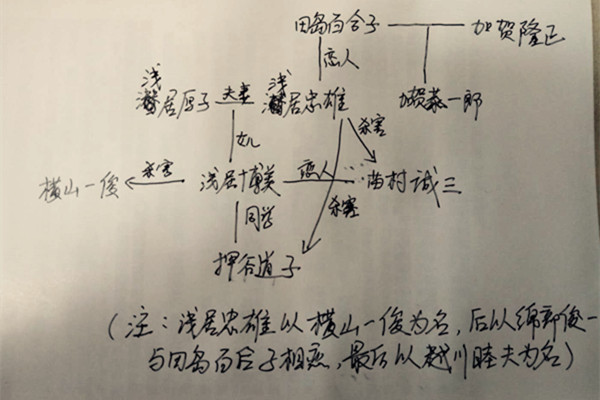 田岛百合子 加贺隆正
恋人
浅 浅
居厚子 夫妻 居忠雄 加贺恭一郎
杀害
女儿
横山一俊 杀害 浅居博美 恋人 苗村诚三
同学 杀害
押谷道子
(注：浅居忠雄以横山一俊为名，后以绵部俊一
与田岛百合子相恋，最后以越川睦夫为名)